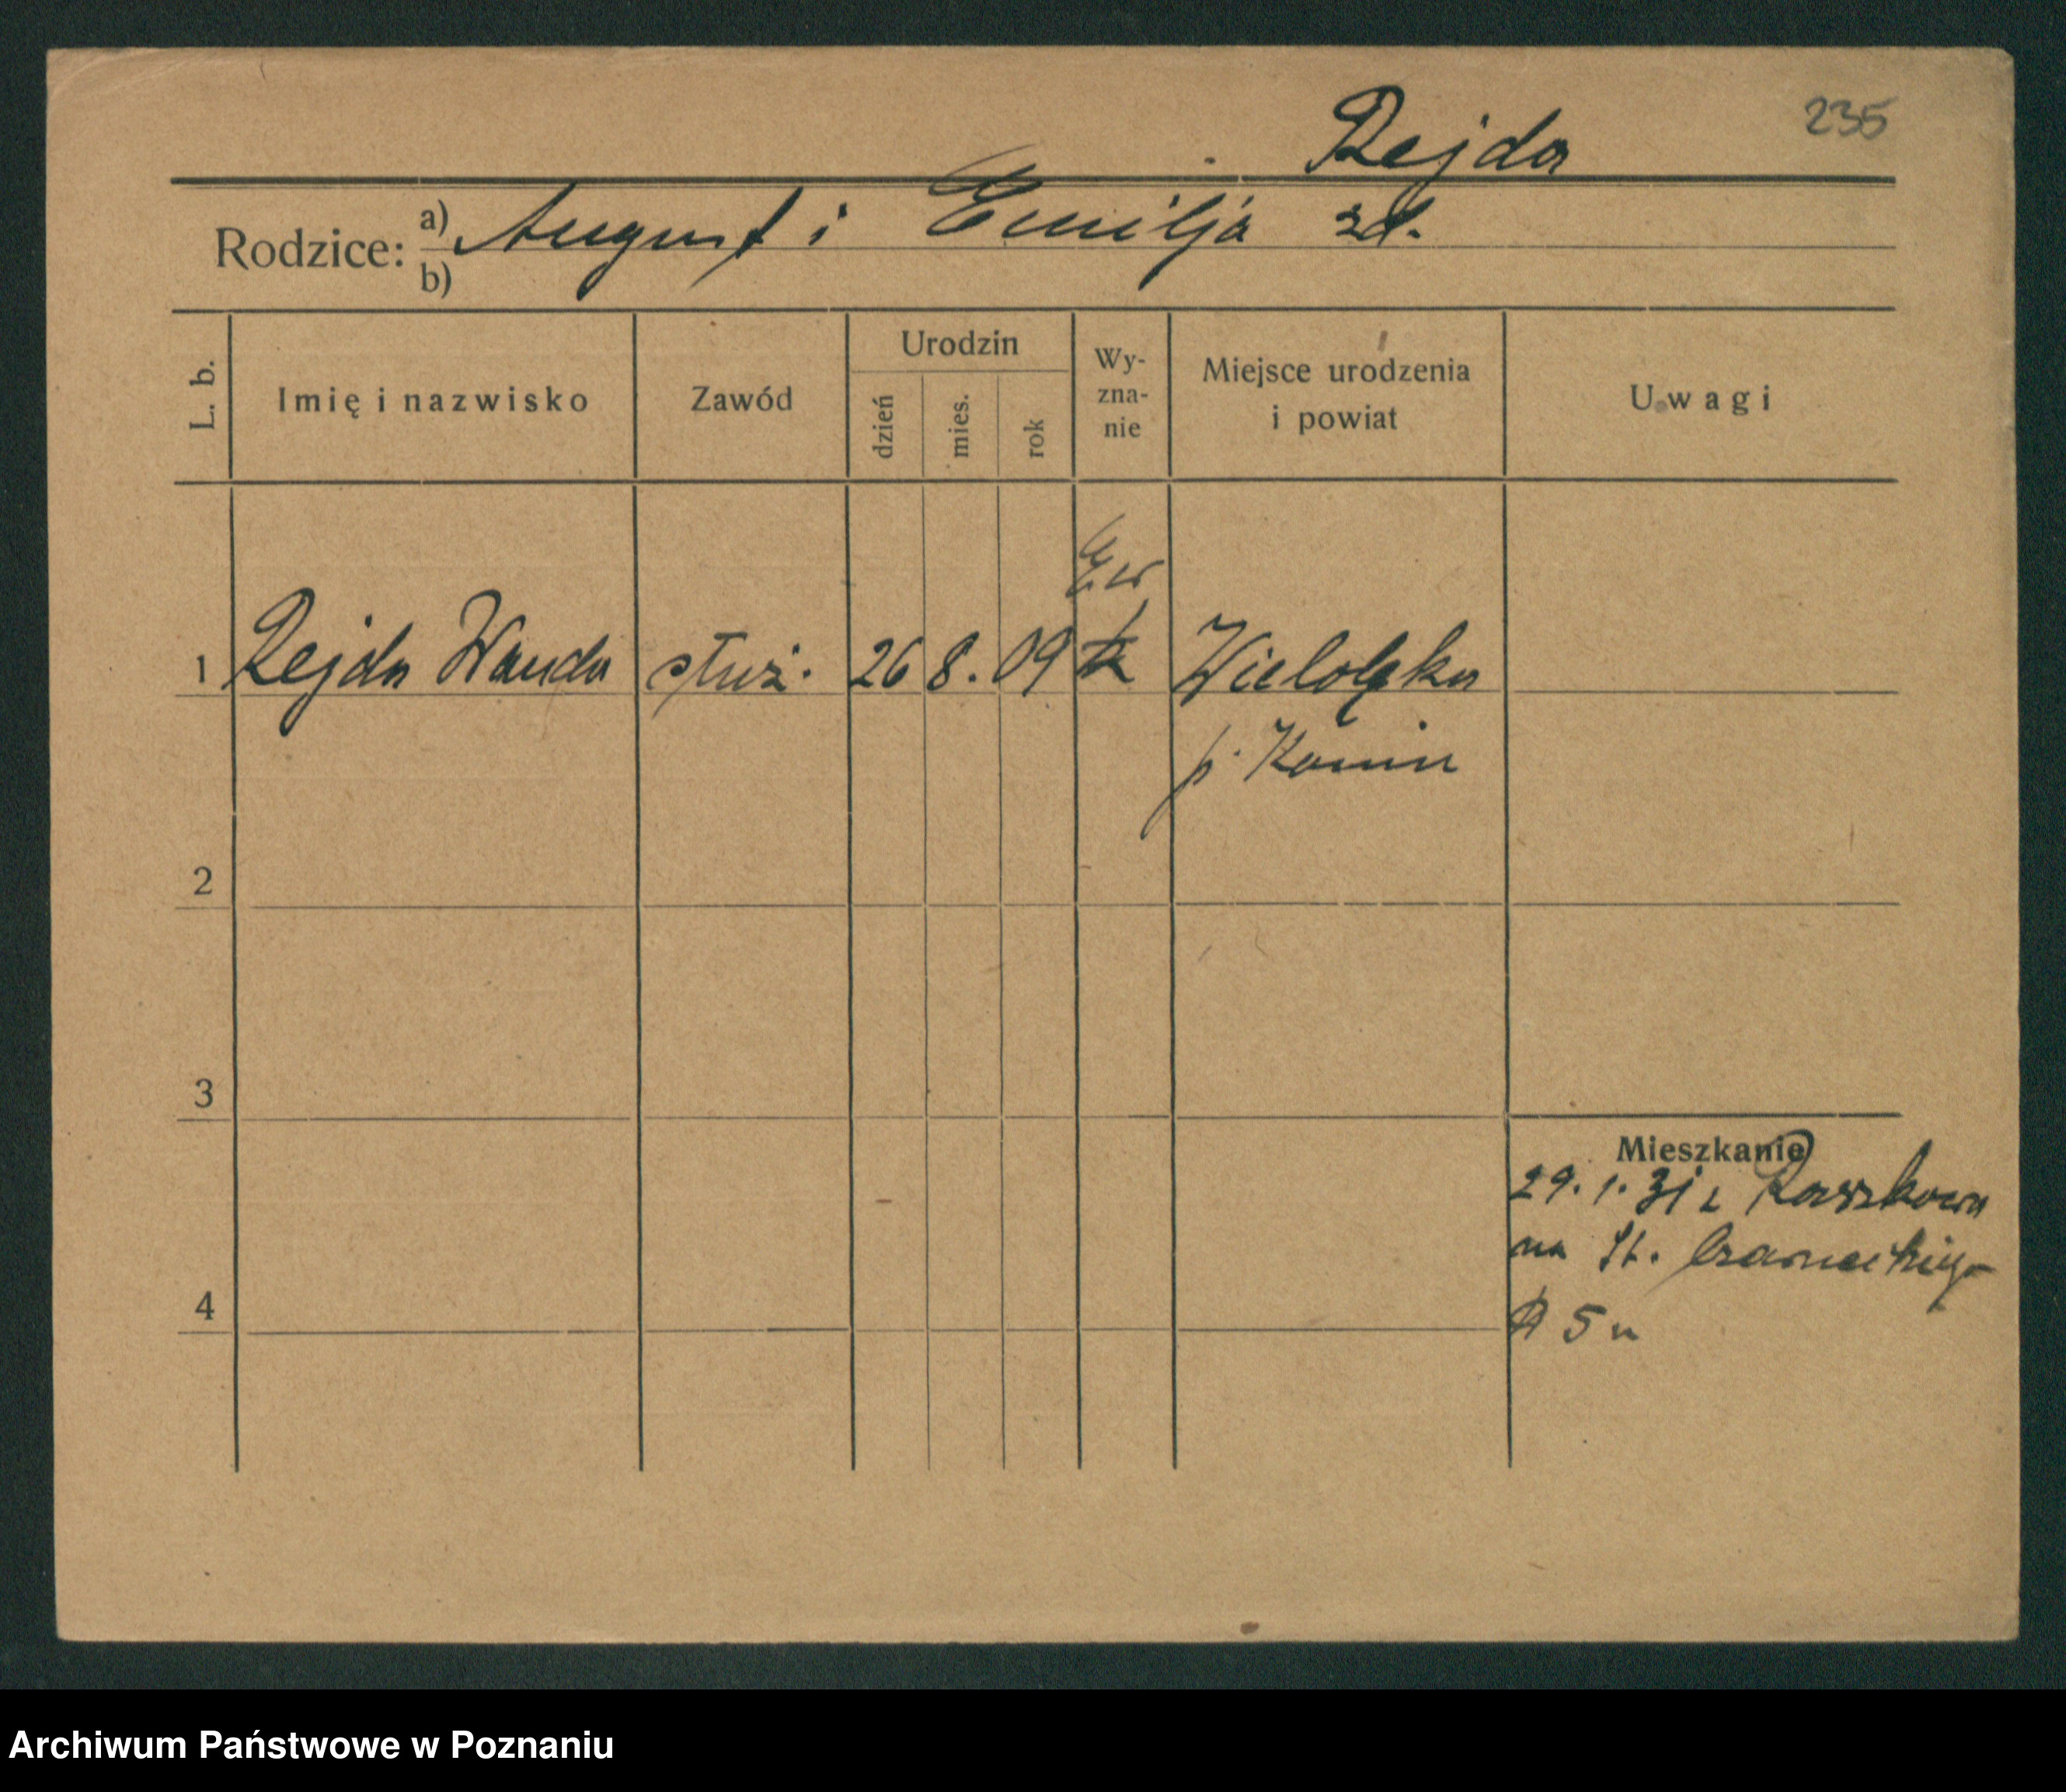 235
Rejda
Rodzice: a) August i Emilja zd.
b)
L. b.
Imię i nazwisko
Zawód
Urodzin
dzień
mies.
rok
Wy-
zna-
nie
Miejsce urodzenia
i powiat
Uwagi
Ew
1 Rejda Wanda służ. 26 8. 09 k Wielołęka
p. Konin
2
3
Mieszkanie
29. 1. 31 z Raszkowa
na St. Czarneckiego
5
4
Archiwum Państwowe w Poznaniu